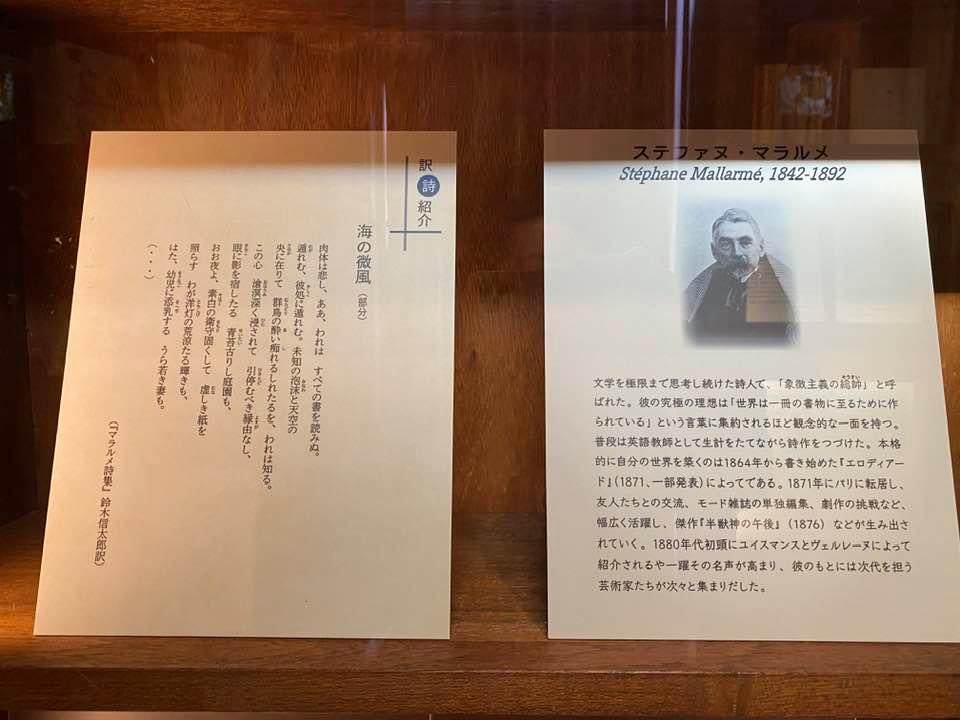 訳詩紹介
海の微風（部分）
肉体は悲し、ああ、われは　すべての書を読みぬ。
遁れむ、彼処に遁れむ。未知の泡沫と天空の
央に在りて　群鳥の酔い痴れるしれたるを、われは知る。
この心　滄溟深く浸されて　引停むべき縁由なし、
眼に影を宿したる　青苔古りし庭園も、
おお夜よ、素白の衛守固くして　虚しき紙を
照らす　わが洋灯の荒涼たる輝きも、
はた、幼児に添乳する　うら若き妻も。
（・・・）
（『マラルメ詩集』鈴木信太郎訳）
ステファヌ・マラルメ
Stéphane Mallarmé, 1842-1892
文学を極限まで思考し続けた詩人で、「象徴主義の総帥」と呼
ばれた。彼の究極の理想は「世界は一冊の書物に至るために作
られている」という言葉に集約されるほど観念的な一面を持つ。
普段は英語教師として生計をたてながら詩作をつづけた。本格
的に自分の世界を築くのは1864年から書き始めた『エロディアー
ド』（1871、一部発表）によってである。1871年にパリに転居し、
友人たちとの交流、モード雑誌の単独編集、劇作の挑戦など、
幅広く活躍し、傑作『半獣神の午後』（1876）などが生み出さ
れていく。1880年代初頭にユイスマンスとヴェルレーヌによって
紹介されるや一躍その名声が高まり、彼のもとには次代を担う
芸術家たちが次々と集まりだした。